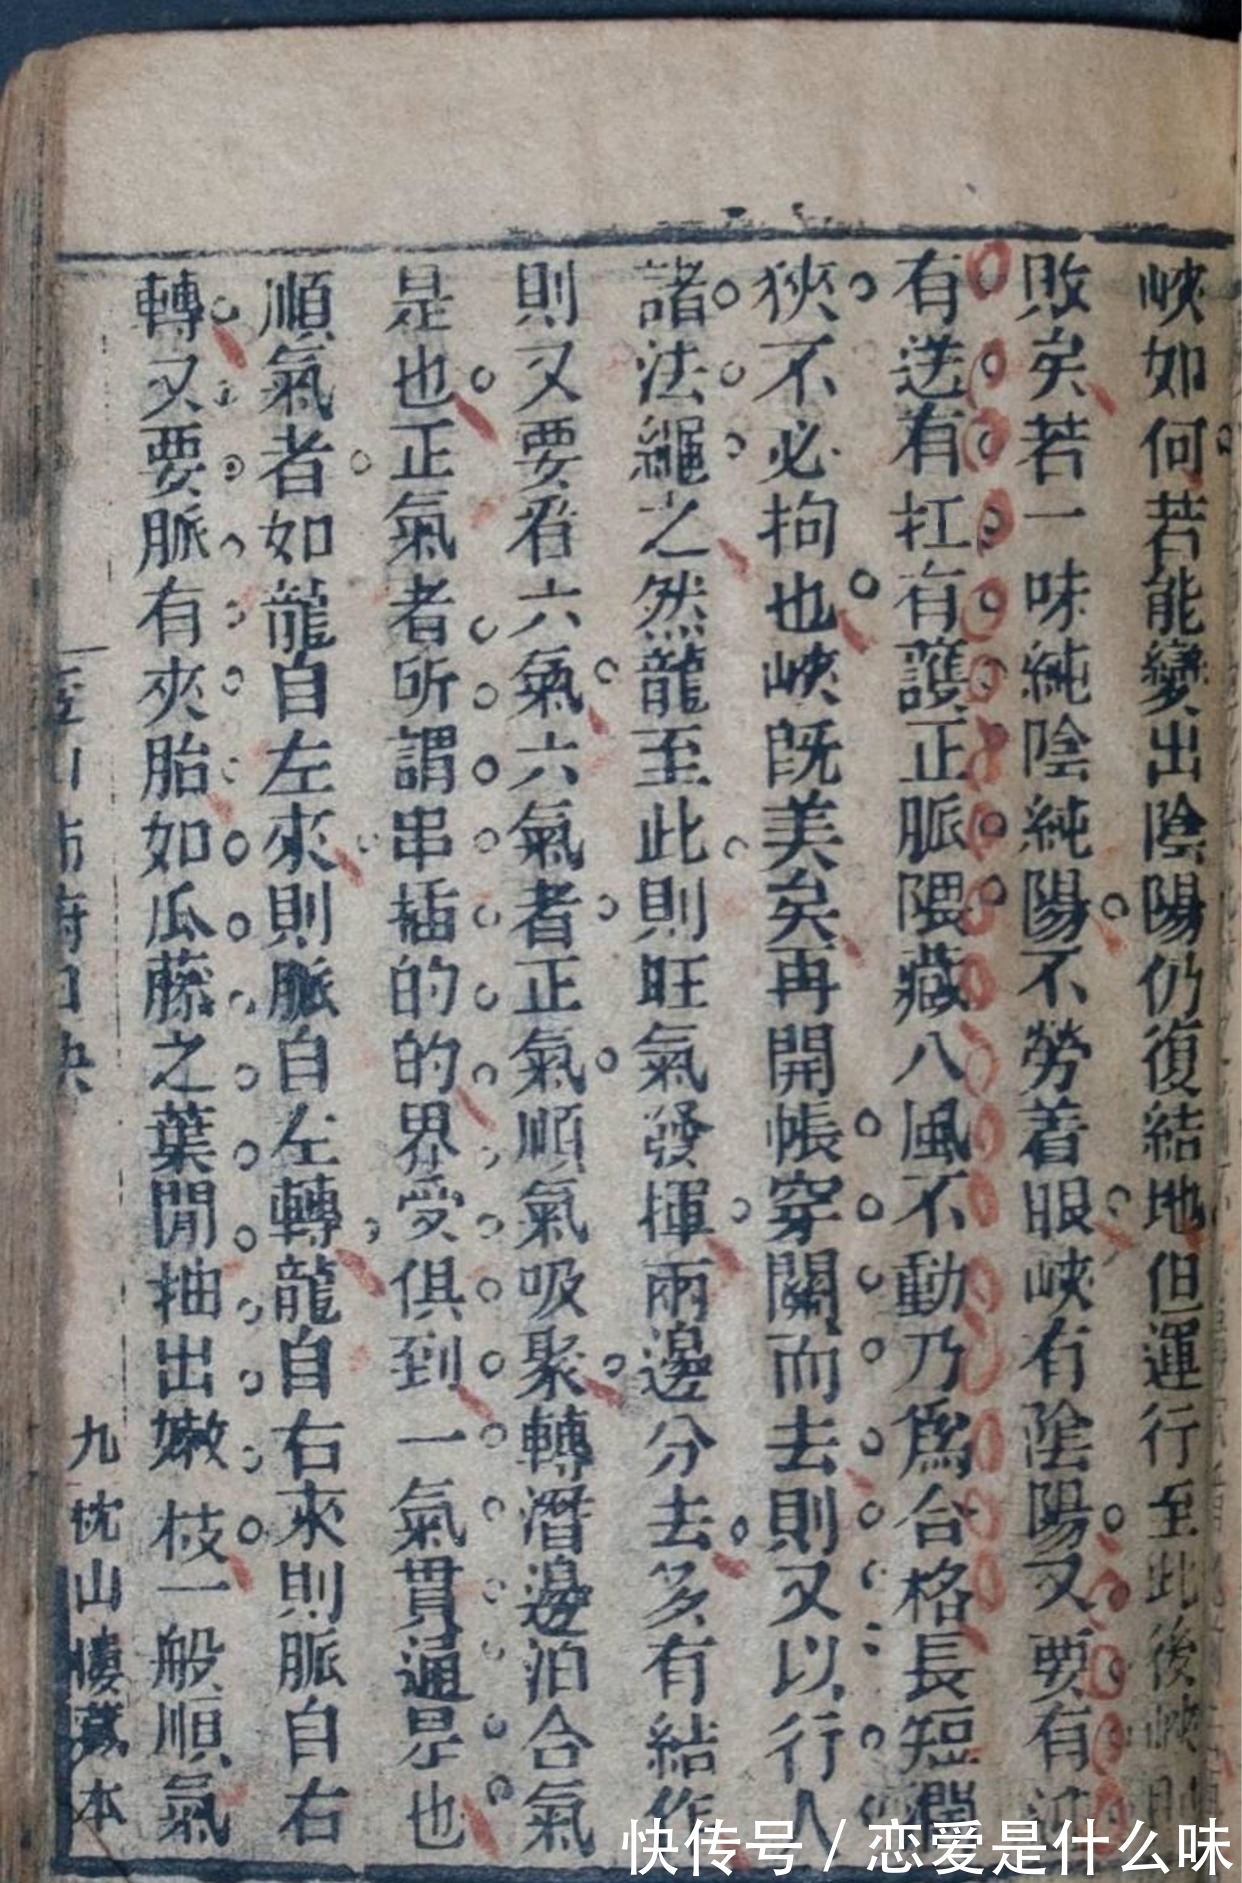 峽如何若能變出陰陽仍復結地但運行至此後峽則
敗矣若一味純陰純陽不勞着眼峽有陰陽又要有
有送有扛有護正脈隈藏八風不動乃爲合格長短濶
狹不必拘也峽旣美矣再開帳穿關而去則又以行人
諸法繩之然龍至此則旺氣發揮兩邊分去多有結作
則又要看六氣六氣者正氣順氣吸聚轉潛邊泊合氣
是也正氣者所謂串插的的界受俱到一氣貫通是也
順氣者如龍自左來則脈自左轉龍自右來則脈自右
轉又要脈有夾胎如瓜藤之葉閒抽出嫩枝一般順氣
山 口
九枕山樓藏本
快传号/恋爱是什么味